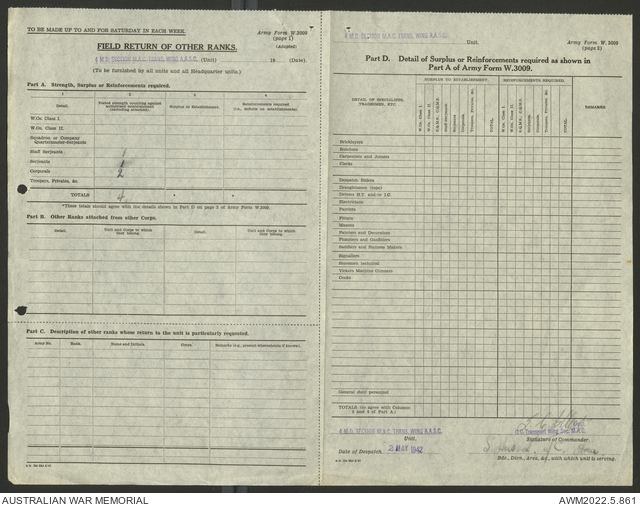 TO BE MADE UP TO AND FOR SATURDAY IN EACH WEEK.
Army Form W.3009
(page 1)
(Adapted)
FIELD RETURN OF OTHER RANKS.
4 M.D. SECTION M.A.C. TRANS. WING A.A.S.C. (Unit) 19 (Date).
(To be furnished by all units and all Headquarter units.)
Part A. Strength, Surplus or Reinforcements required.
1 2 3 4
Detail. Surplus to Establishment. Reinforcements required
W.Os. Class I.
W.Os. Class II.
Squadron or Company
Quartermaster-Serjeants
Staff Serjeants 1
Serjeants 1
Corporals 2
Troopers, Privates, &c.
TOTALS 4 * *
*These totals should agree with the details shown in Part D on page 2 of Army Form W.3009.
Part B. Other Ranks attached from other Corps.
Detail. Unit and Corps to which they belong. Detail. Unit and Corps to which they belong.
Part C. Description of other ranks whose return to the unit is particularly requested.
Army No. Rank. Name and Initials. Corps. Remarks (e.g., present whereabouts if known).
4 M.D. SECTION M.A.C. TRANS. WING A.A.S.C.
Unit.
Army Form W. 3009
(page 2)
Part D. Detail of Surplus or Reinforcements required as shown in
Part A of Army Form W.3009.
DETAIL OF SPECIALISTS, TRADESMEN, ETC.
SURPLUS TO ESTABLISHMENT. REINFORCEMENTS REQUIRED.
W.Os. Class I. W.Os. Class II. Staff Serjeants Serjeants Corporals Troopers, Privates, &c. TOTAL. W.Os. Class I. W.Os. Class II. Serjeants Corporals Troopers, Privates, &c. TOTAL.
REMARKS
Bricklayers
Butchers
Carpenters and Joiners
Clerks
Despatch Riders
Draughtsmen (topo)
Drivers H.T. and/or I.C.
Electricians
Farriers
Fitters
Masons
Painters and Decorators
Plumbers and Gasfitters
Saddlers and Harness Makers
Signallers
Storemen technical
Vickers Machine Gunners
Cooks
General duty personnel
TOTALS (to agree with Columns
3 and 4 of Part A)
4 M.D. SECTION M.A.C. TRANS. WING A.A.S.C.
Unit.
O.C. Transport Wing Sec. M.A.C.
Signature of Commander.
Date of Despatch 2 MAY 1942
Bde., Divn., Area, &c., with which unit is serving.
AUSTRALIAN WAR MEMORIAL
AWM2022.5.861